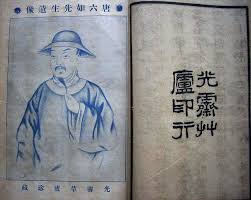 唐六如先生遺像
光霽草廬藏
光霽艸
廬印行